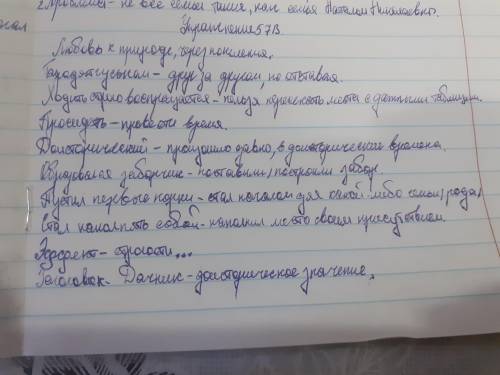 2. Проблемы - не все семьи такие, как семья Натальи Николаевны.
Упражнение 57В.
Любовь к природе, через поколения.
Гарадэт гуськом - друг за другом, не отставая.
Ходить строго воспрещается - нельзя пересекать места с данными таблицами.
Просидеть - провести время.
Доисторический - произошло давно, в доисторические времена.
Образовался заборчик - поставили, построили забор.
Пустил первого корни - стал началом для какой либо семьи, рода,
Стал наполнять собой - наполнил место своим присутствием.
Эффект - строгости...
Заголовок - Дачник - доисторическое значение.